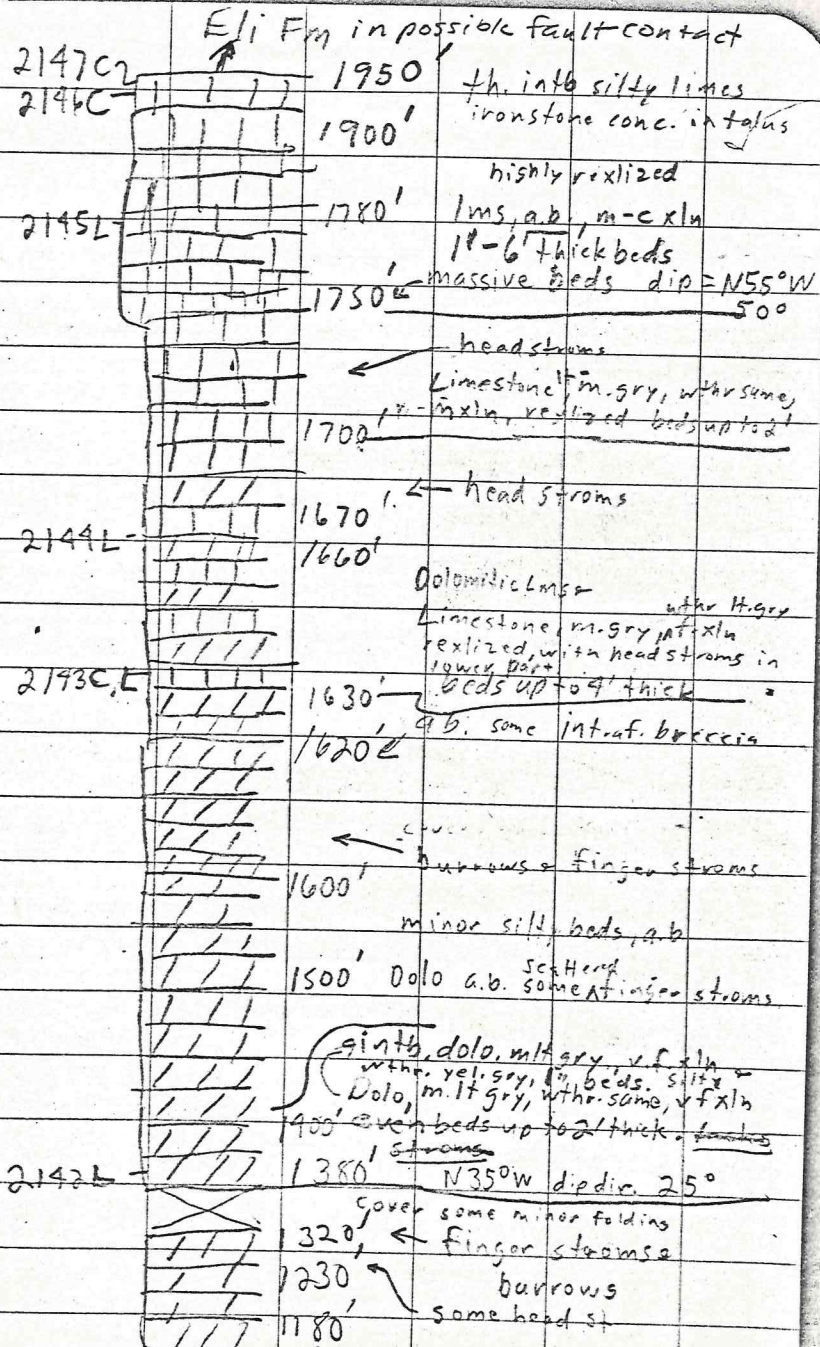 Eli Fm in possible fault contact
2147C2
1950'
2146C
th. intb silty limes
ironstone conc. in talus
1900'
highly rexlized
2145L
1780'
lms, a.b, m-c xln
1"-6' thick beds
massive beds dip = N55°W
1750'
50°
head stroms
Limestone, m. gry, wthr same,
mxln, rexlized beds up to 2'
1700'
head stroms
1670'
2144L
1660'
Dolomitic Lms
wthr lt. gry
Limestone, m. gry, f. xln
rexlized, with head stroms in
lower part
2143C, L
beds up to 4' thick
1630'
a.b. some int. af. breccia
1620'
cover
burrows & finger stroms
1600'
minor silty beds, a.b
scatterd
1500' Dolo a.b. some finger stroms
intb, dolo, mlt gry, v.f. xln
wthr. yel. gry, 1" beds. silty
Dolo, m. lt gry, wthr. same, v f xln
1400' even beds up to 2' thick.
stroms
2142L
1380'
N35°W dip dir. 25°
cover some minor folding
1320'
finger stroms &
1230
burrows
some head st
1180'